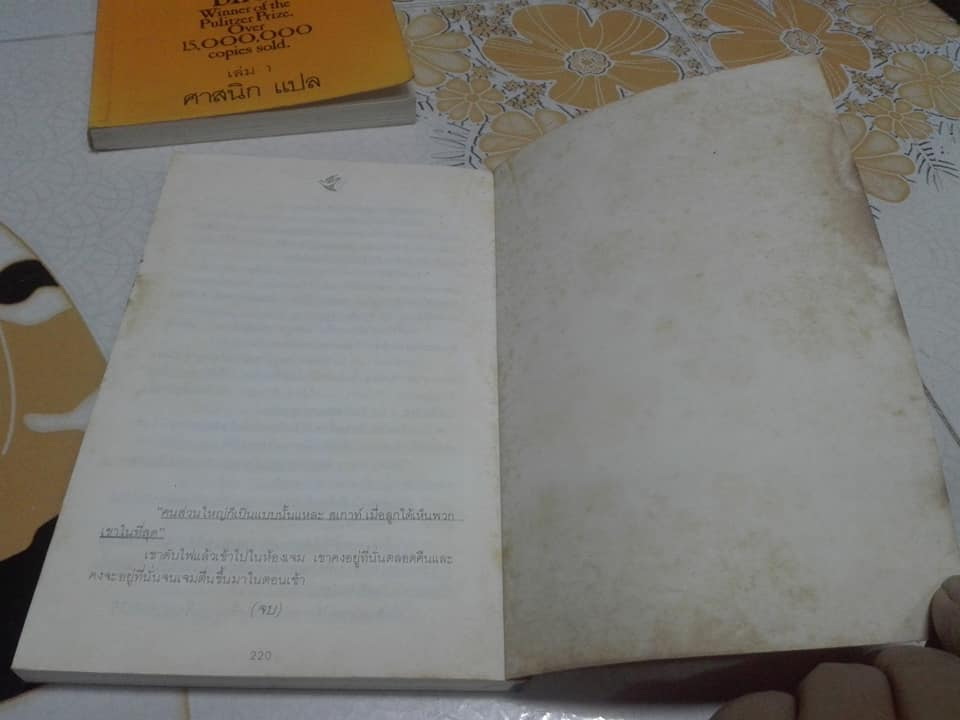 Winner of the
Pulitzer Prize.
Over
15,000,000
copies sold.
เล่ม ๑
ศาสนิก แปล
"คนส่วนใหญ่ก็เป็นแบบนั้นแหละ สเกาท์ เมื่อลูกได้เห็นพวก
เขาในที่สุด"
เขาดับไฟแล้วเข้าไปในห้องเจม เขาคงอยู่ที่นั่นตลอดคืนและ
คงจะอยู่ที่นั่นจนเจมตื่นขึ้นมาในตอนเช้า
(จบ)
220